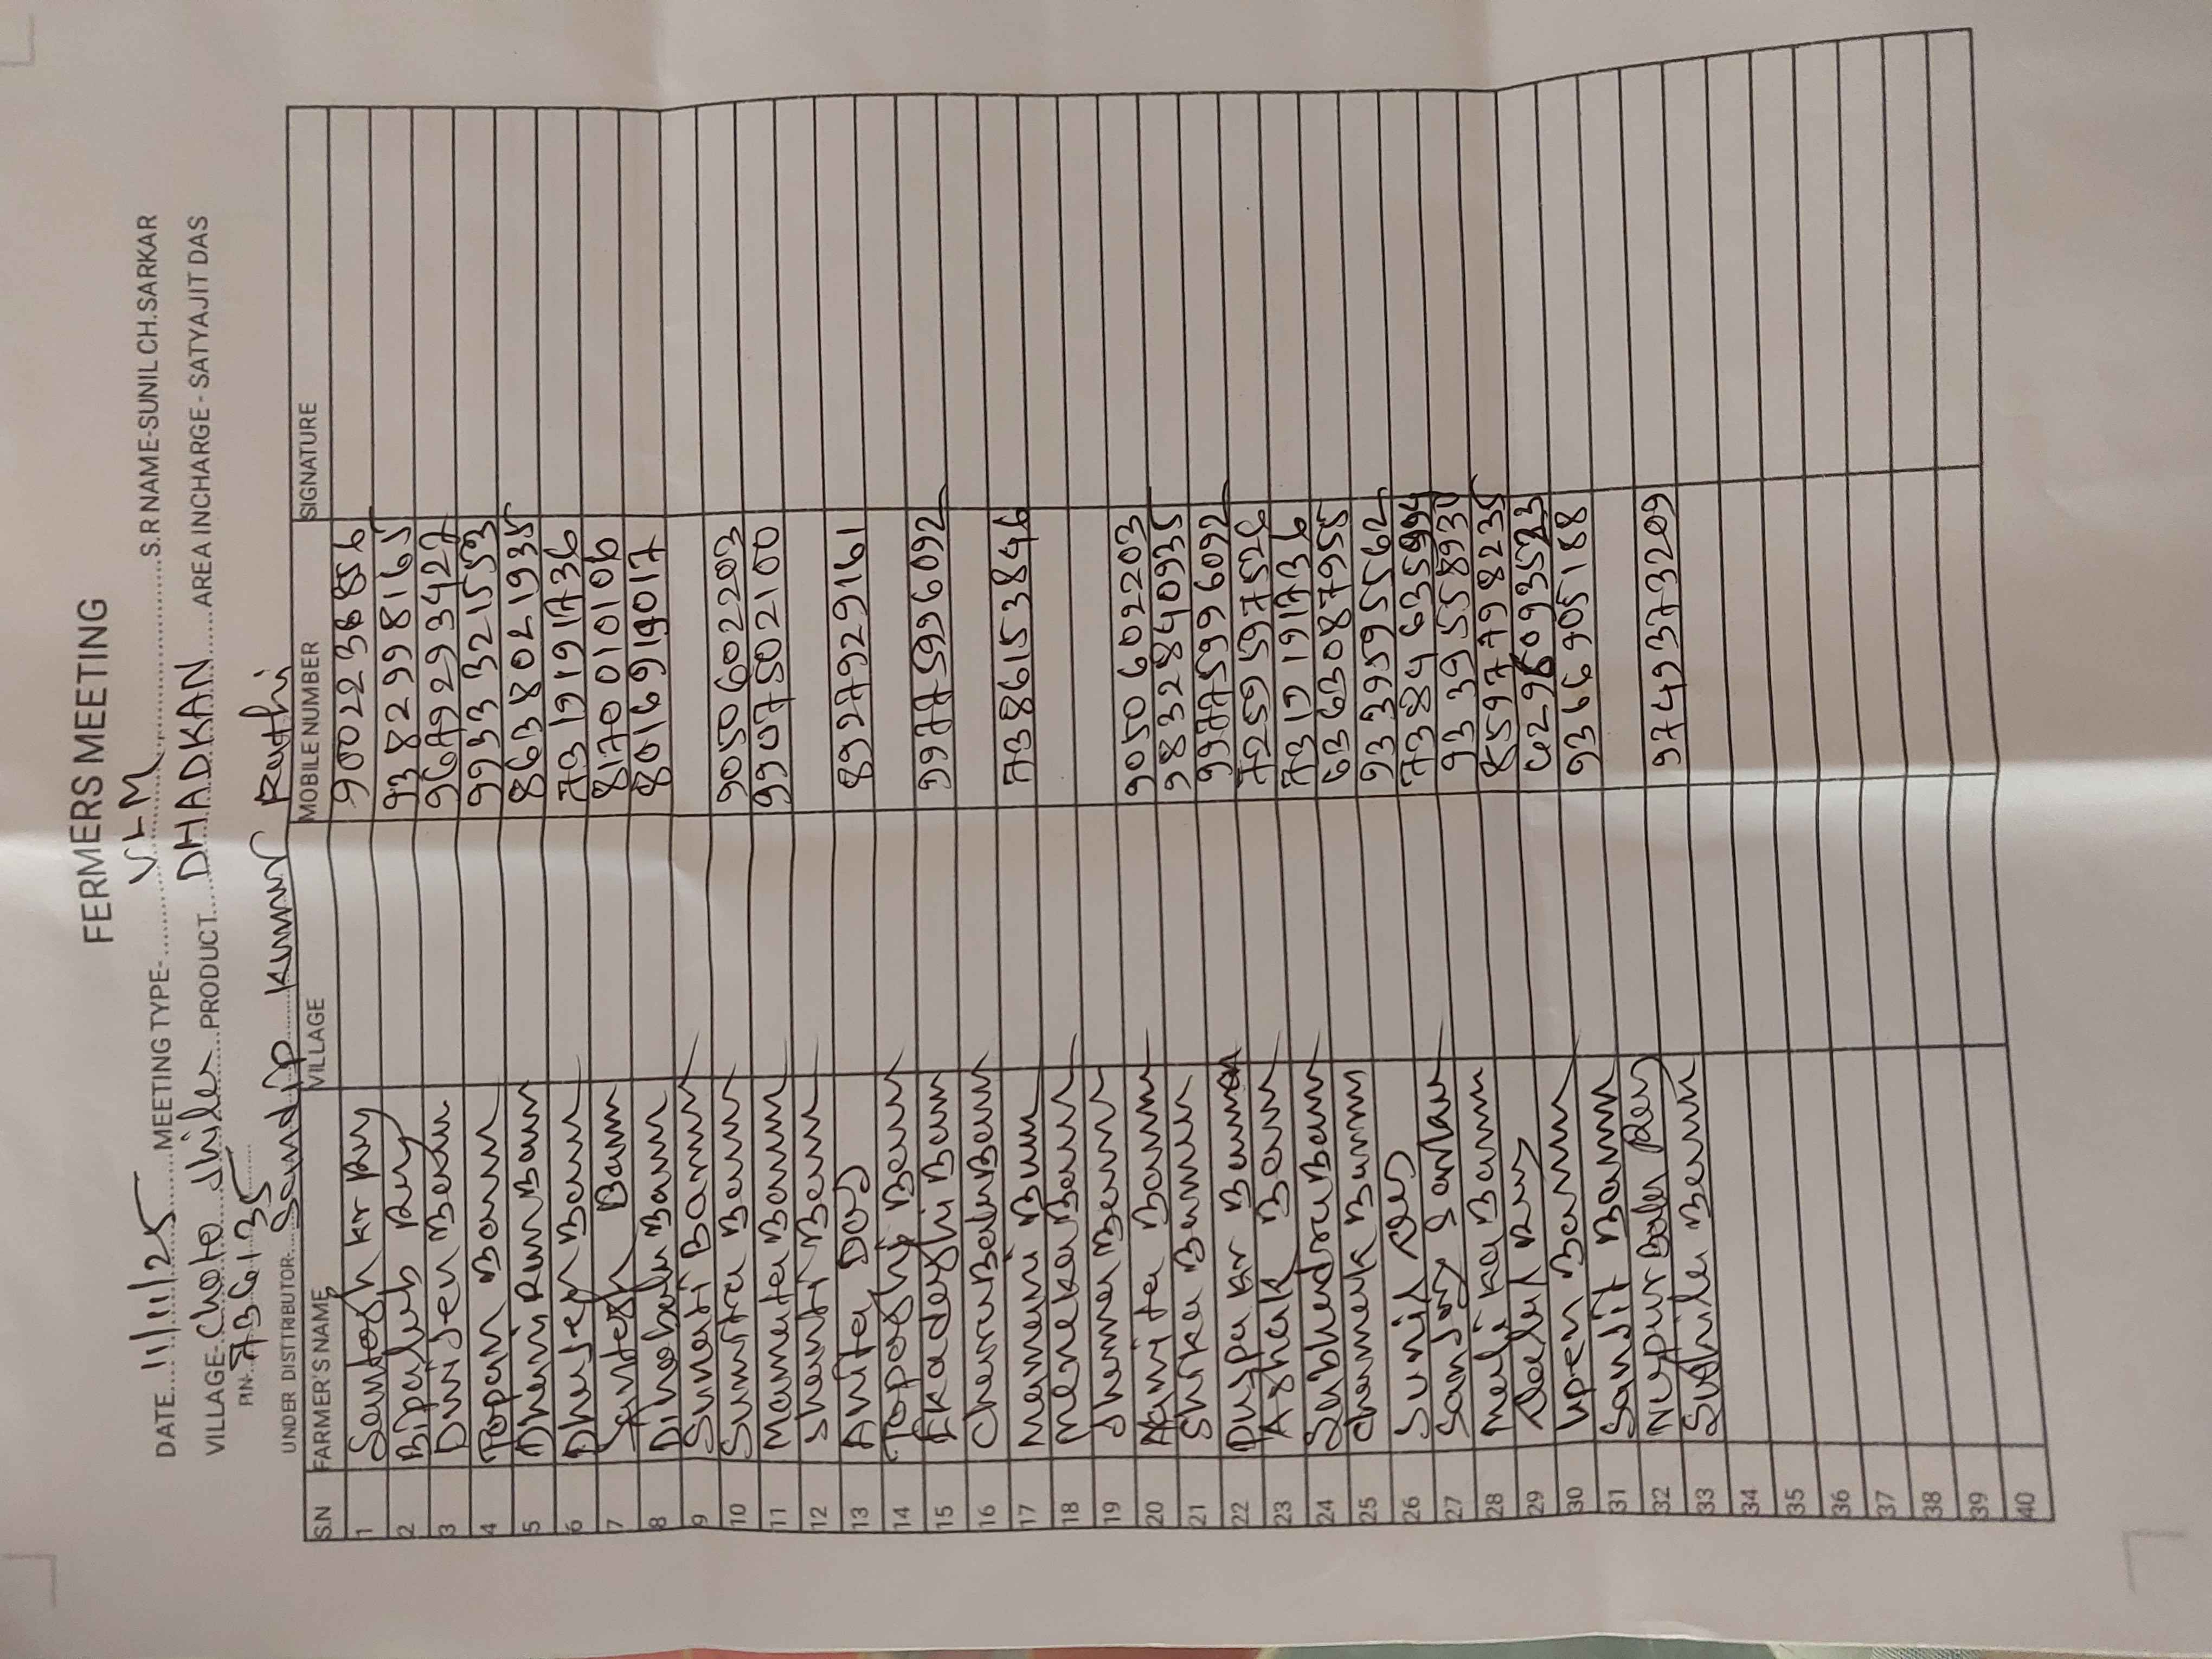 FERMERS MEETING
DATE....11/11/25......MEETING TYPE-..........VLM..........S.R NAME-SUNIL CH.SARKAR
VILLAGE-Choto dhile...PRODUCT....DHADKAN......AREA INCHARGE - SATYAJIT DAS
PIN-...736135
UNDER DISTTRIBUTOR...Sandip Kumar Rathi
S.N FARMER'S NAME VILLAGE MOBILE NUMBER SIGNATURE
1 Santosh kr Ray 9002236856
2 Biplab Ray 9382998165
3 Dwijen Barman 9679293427
4 Topan Barman 9933321553
5 Dhani Ram Barman 8638021935
6 Dhujen Barman 7319191736
7 Santosh Barman 8170010106
8 Dinobalu Barman 8016919017
9 Sumati Barman
10 Sumitra Barman 9050602203
11 Mamata Barman 9907502100
12 Shanti Barman
13 Anita Das 8927929161
14 Toposhi Barman
15 Ekadoshi Barman 9977599 6092
16 Chana Bala Barman
17 Namani Barman 7386153846
18 Meneka Barman
19 Jhamna Barman
20 Namita Barman 9050602203
21 Shika Barman 9832840935
22 Duspa kr Barman 9977599 6092
23 Ashok Barman 7259597526
24 Subhendra Barman 7319191736
25 Chamak Barman 6363087955
26 Sunil Ray 9339595562
27 Sanjoy Sarkar 7384635994
28 Malika Barman 9339558930
29 Ray 8597798235
30 Upen Barman 9366905188
31 Sanjit Barman
32 Nupur Bala Ray 9749373209
33 Sushila Barman
34
35
36
37
38
39
40